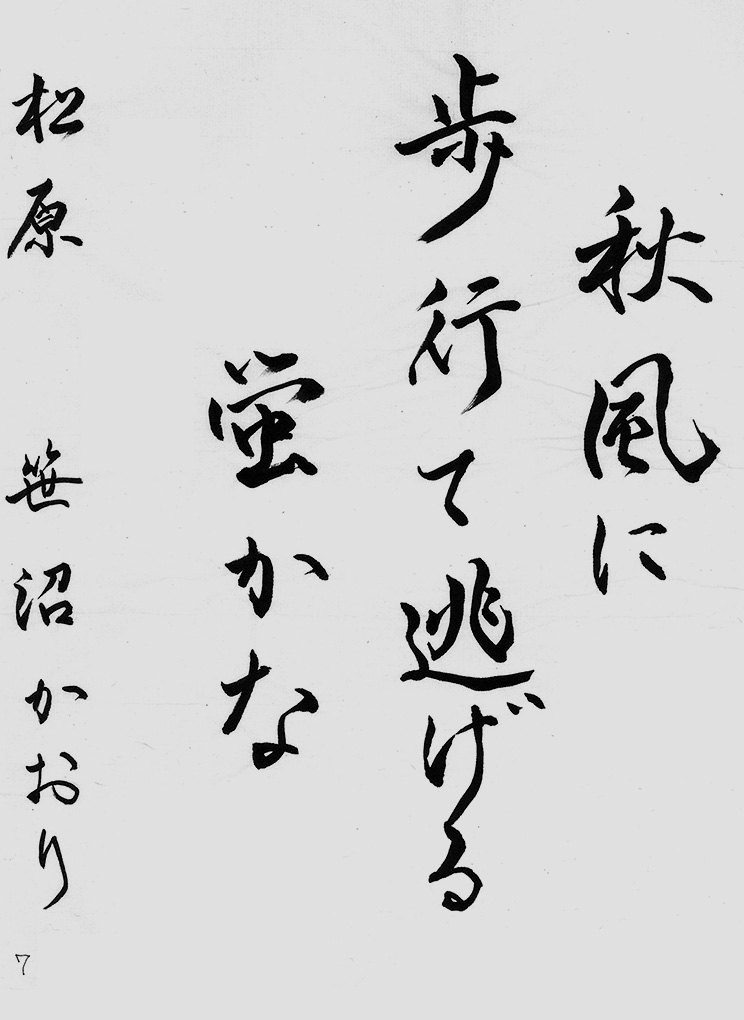 秋風に
歩行て逃げる
蛍かな
松原 笹沼かおり
7